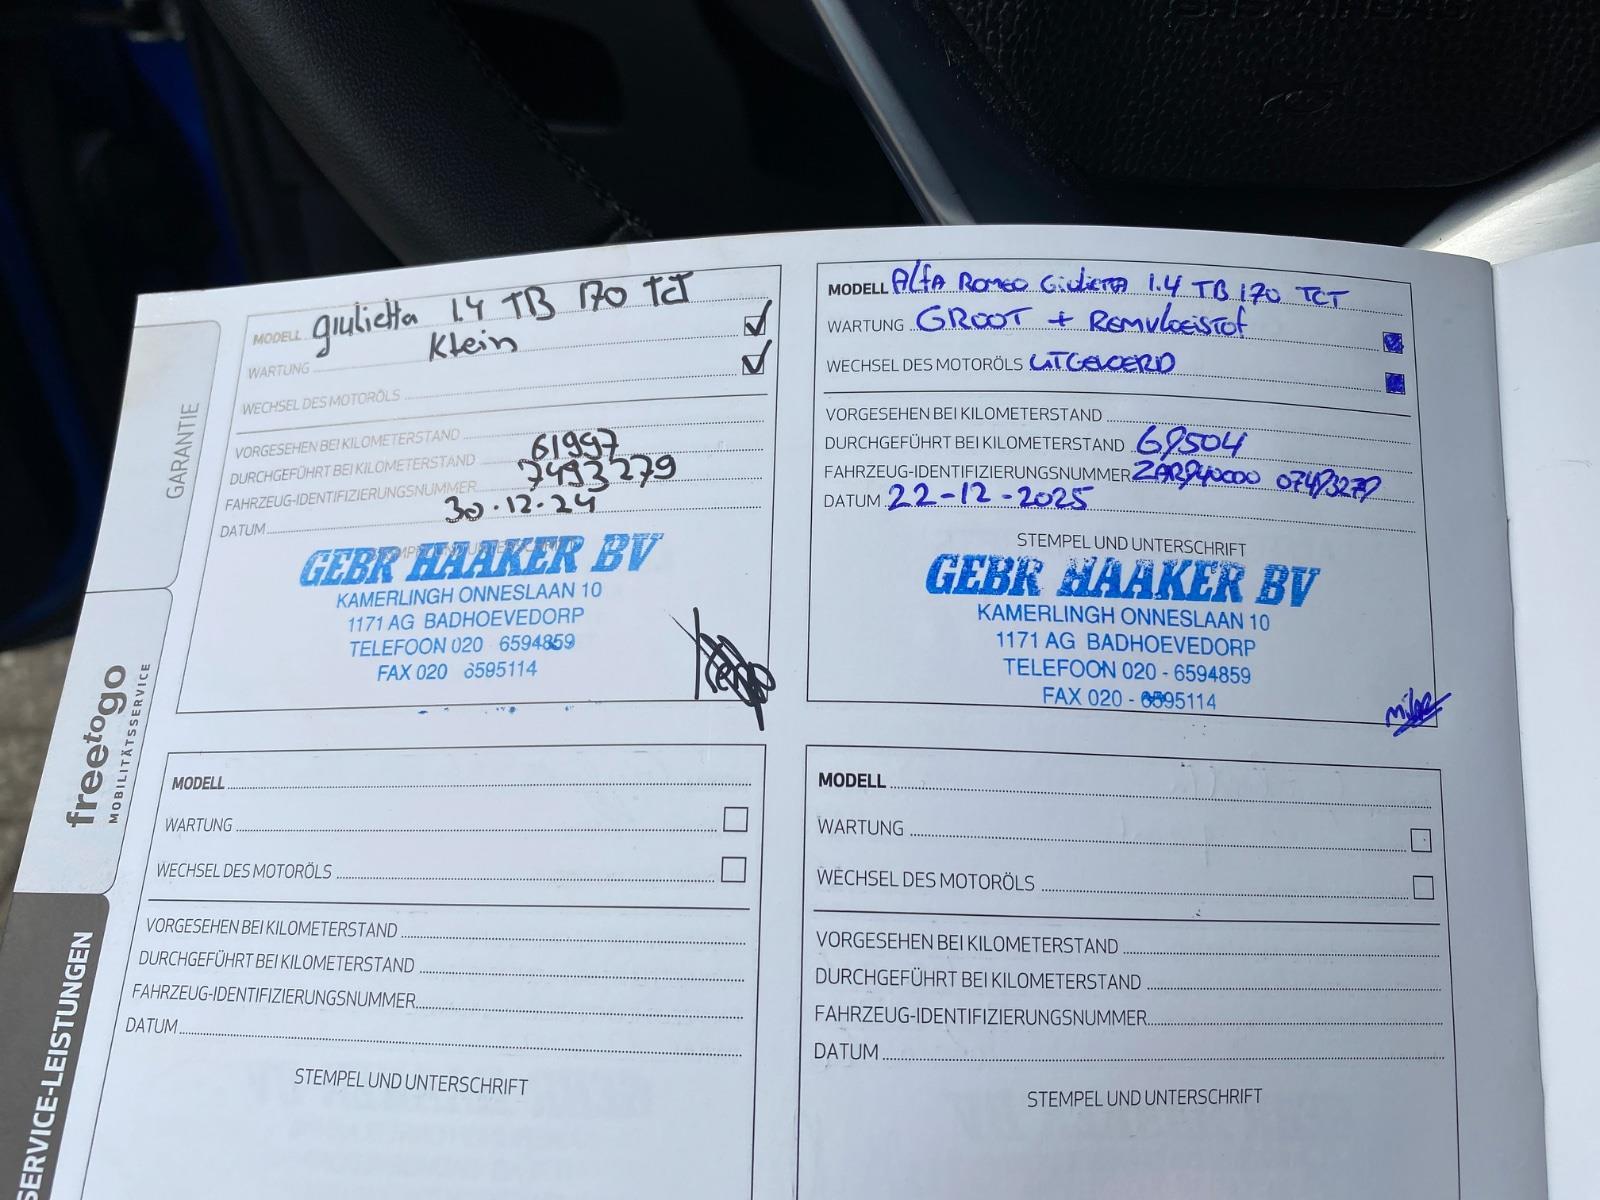 SRS AIRBAG
GARANTIE
freetogo
MOBILITÄTSSERVICE
SERVICE-LEISTUNGEN
MODELL giulietta 1.4 TB 170 TCT
WARTUNG Klein
WECHSEL DES MOTORÖLS
VORGESEHEN BEI KILOMETERSTAND
DURCHGEFÜHRT BEI KILOMETERSTAND 61997
FAHRZEUG-IDENTIFIZIERUNGSNUMMER 7493279
DATUM 30.12.24
STEMPEL UND UNTERSCHRIFT
GEBR HAAKER BV
KAMERLINGH ONNESLAAN 10
1171 AG BADHOEVEDORP
TELEFOON 020 6594859
FAX 020 6595114
MODELL Alfa Romeo Giulietta 1.4 TB 170 TCT
WARTUNG GROOT + REMVLOEISTOF
WECHSEL DES MOTORÖLS UITGEVOERD
VORGESEHEN BEI KILOMETERSTAND
DURCHGEFÜHRT BEI KILOMETERSTAND 69504
FAHRZEUG-IDENTIFIZIERUNGSNUMMER ZAR940000 07493279
DATUM 22-12-2025
STEMPEL UND UNTERSCHRIFT
GEBR HAAKER BV
KAMERLINGH ONNESLAAN 10
1171 AG BADHOEVEDORP
TELEFOON 020 - 6594859
FAX 020 - 6595114
MODELL
WARTUNG
WECHSEL DES MOTORÖLS
VORGESEHEN BEI KILOMETERSTAND
DURCHGEFÜHRT BEI KILOMETERSTAND
FAHRZEUG-IDENTIFIZIERUNGSNUMMER
DATUM
STEMPEL UND UNTERSCHRIFT
MODELL
WARTUNG
WECHSEL DES MOTORÖLS
VORGESEHEN BEI KILOMETERSTAND
DURCHGEFÜHRT BEI KILOMETERSTAND
FAHRZEUG-IDENTIFIZIERUNGSNUMMER
DATUM
STEMPEL UND UNTERSCHRIFT